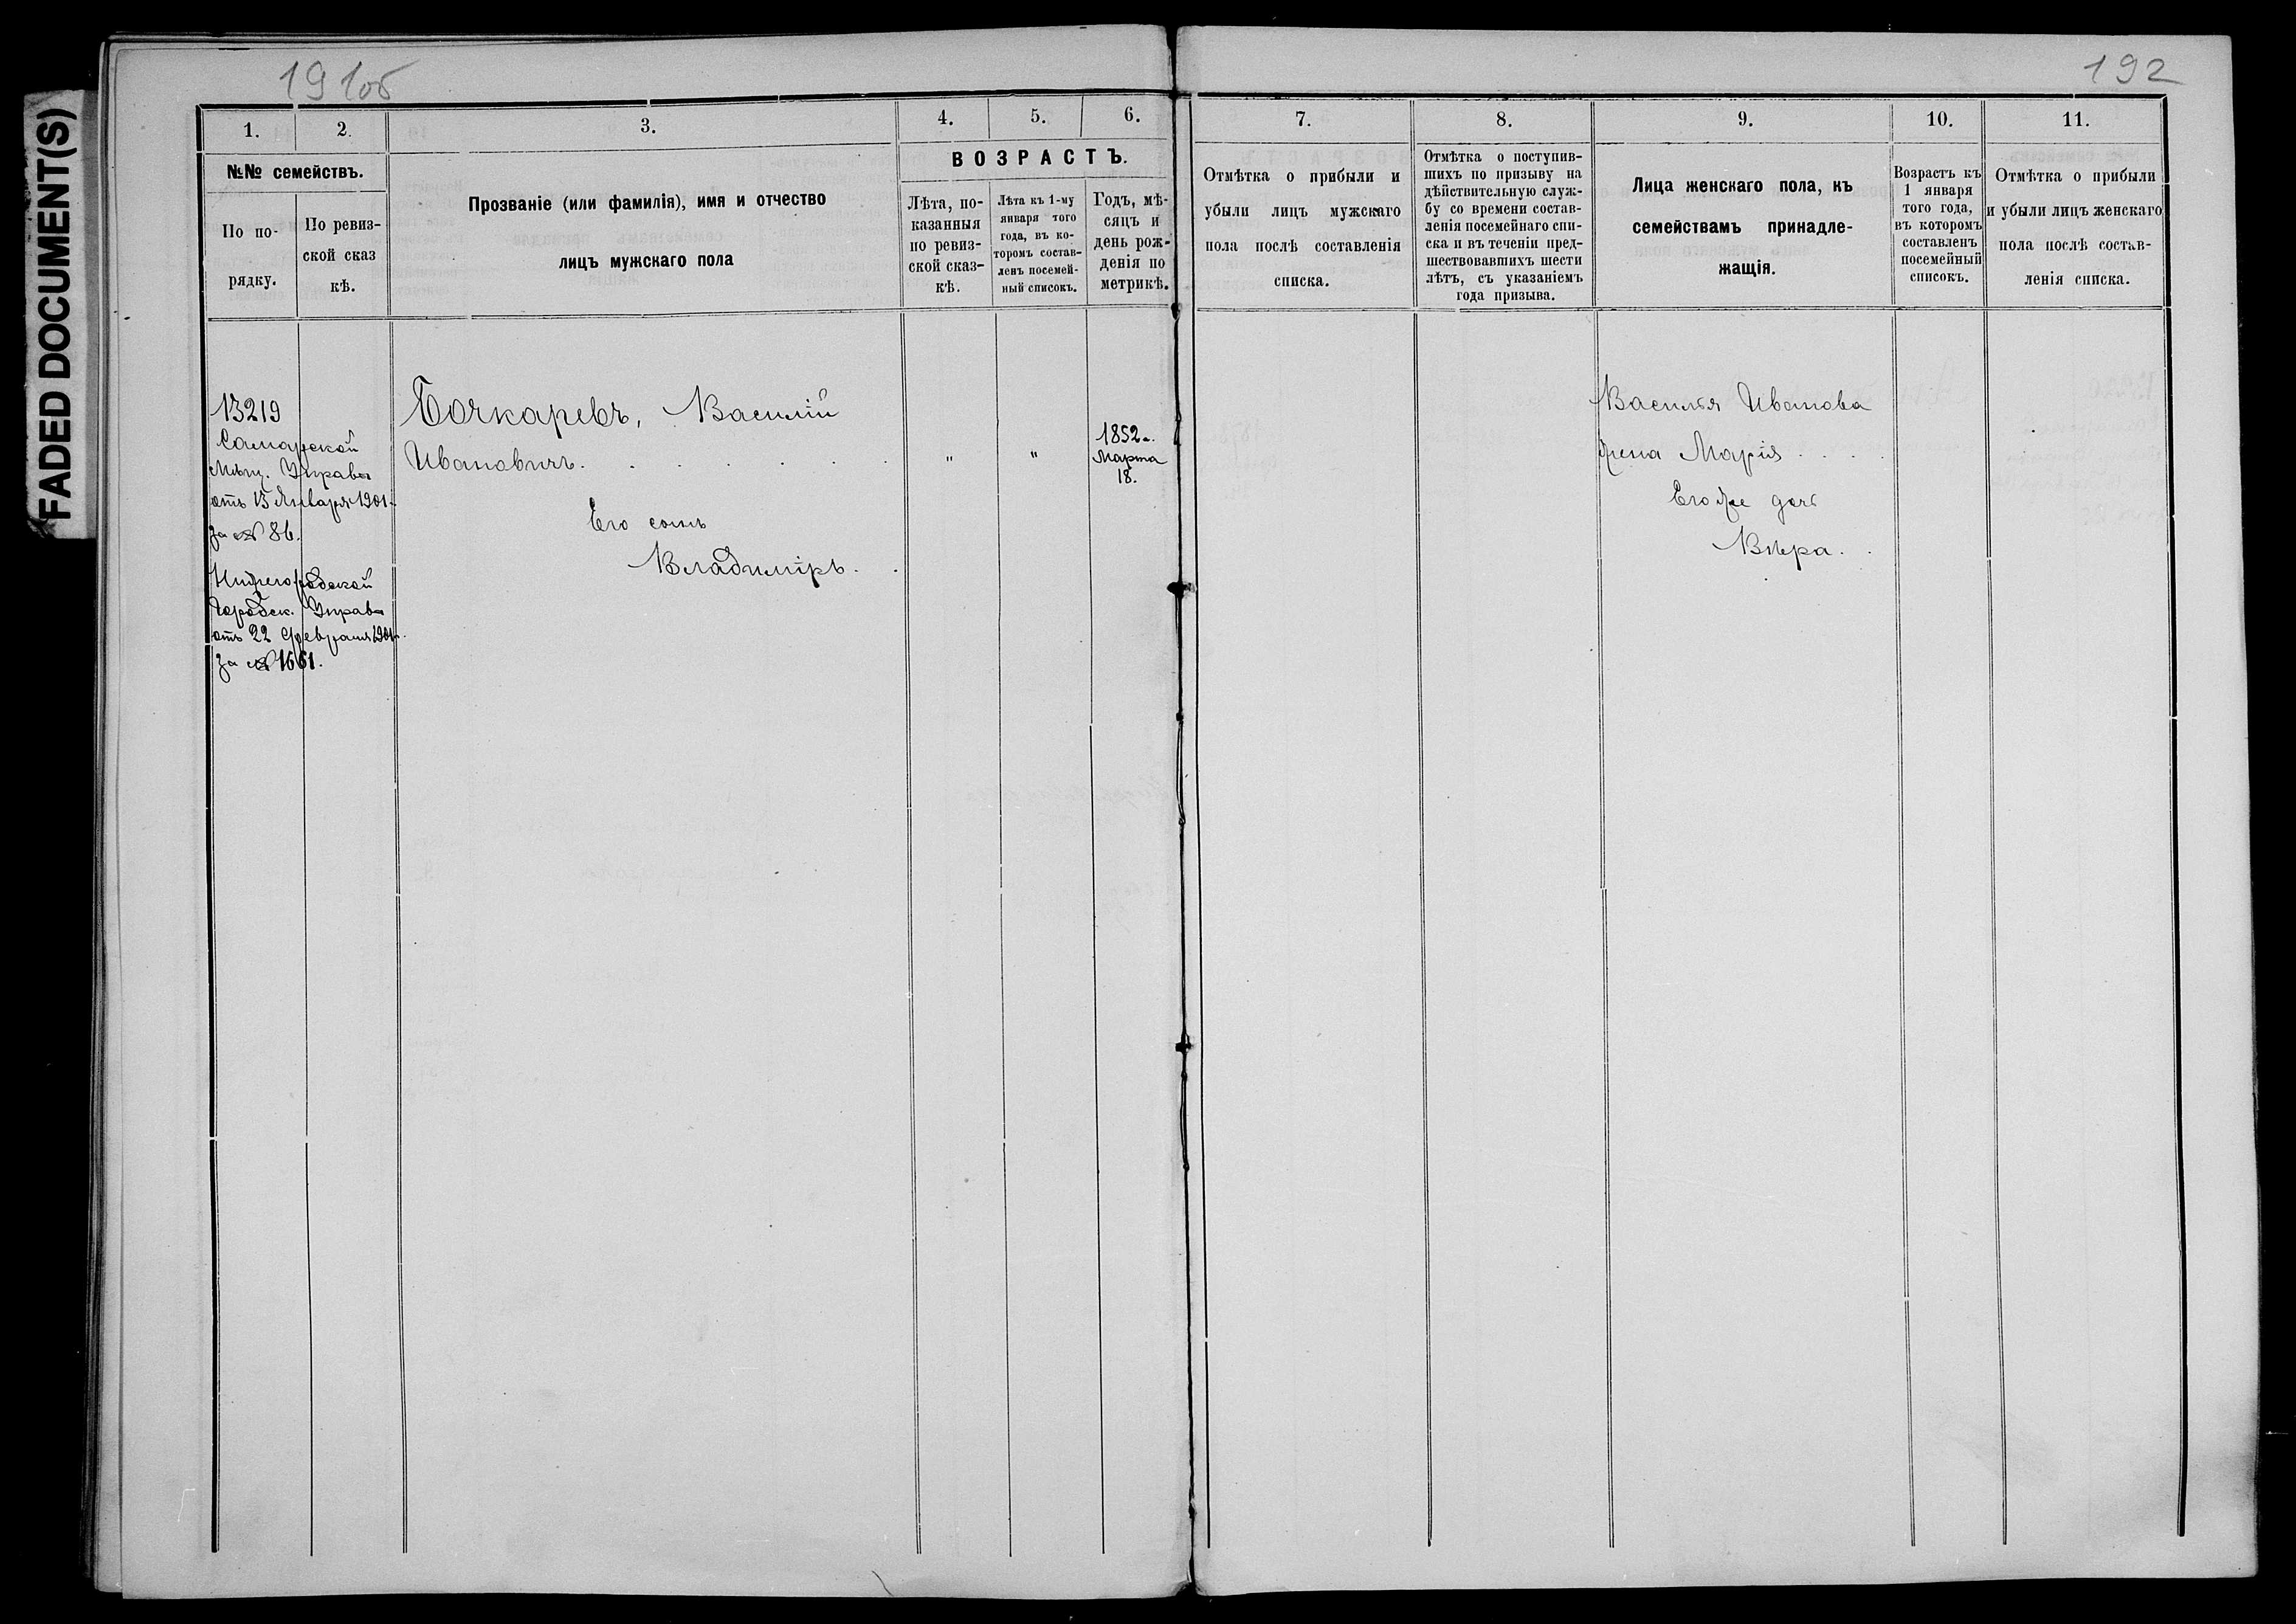 FADED DOCUMENT(S)
191об
192
1.
2.
3.
4.
5.
6.
7.
8.
9.
10.
11.
№№ семействъ.
По по-
рядку.
По ревиз-
ской сказ
кѣ.
Прозваніе (или фамилія), имя и отчество
лицъ мужскаго пола
ВОЗРАСТЪ.
Лѣта, по-
казанныя
по ревиз-
ской сказ-
кѣ.
Лѣта къ 1-му
января того
года, въ ко-
торомъ состав-
ленъ посемей-
ный списокъ.
Годъ, мѣ-
сяцъ и
день рож-
денія по
метрикѣ.
Отмѣтка о прибыли и
убыли лицъ мужскаго
пола послѣ составленія
списка.
Отмѣтка о поступив-
шихъ по призыву на
дѣйствительную служ-
бу со времени состав-
ленія посемейнаго спи-
ска и въ теченіи пред-
шествовавшихъ шести
лѣтъ, съ указаніемъ
года призыва.
Лица женскаго пола, къ
семействамъ принадле-
жащія.
Возрастъ къ
1 января
того года,
въ которомъ
составленъ
посемейный
списокъ.
Отмѣтка о прибыли
и убыли лицъ женскаго
пола послѣ состав-
ленія списка.
13219
Самарской
Мѣщ. Управы
отъ 15 Января 1901 г.
за № 86.
Нижегородской
Городск. Управы
отъ 22 Февраля 1901 г.
за № 1661.
Бочкаревъ, Василій
Ивановичъ. . . . . . .
Его сынъ
Владиміръ. .
"
"
1852 г.
Марта
18.
Василья Иванова
жена Марія . . . .
Его же дочь
Вѣра. .